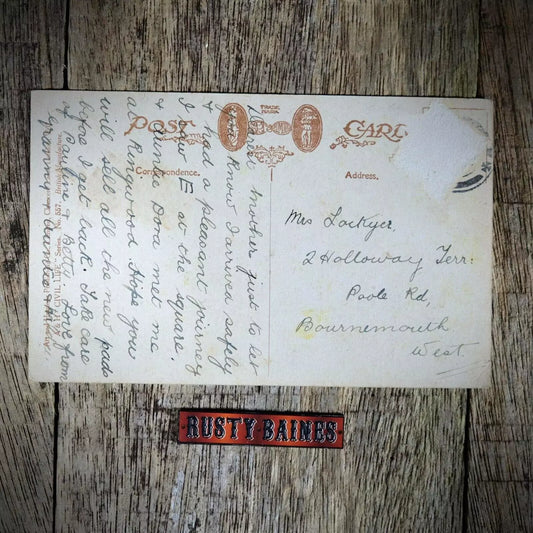 POST CARD
TRADE MARK
Correspondence.
Address.
Dear Mother just to let
you know I arrived safely
& had a pleasant journey
I saw E at the square.
& Auntie Dora met me
at Ringwood Hope you
will sell all the new pads
before I get back. Take care
of & Betty. Love from
Granny Auntie &
Mrs Lockyer,
2 Holloway Terr:
Poole Rd,
Bournemouth
West.
RUSTY BAINES